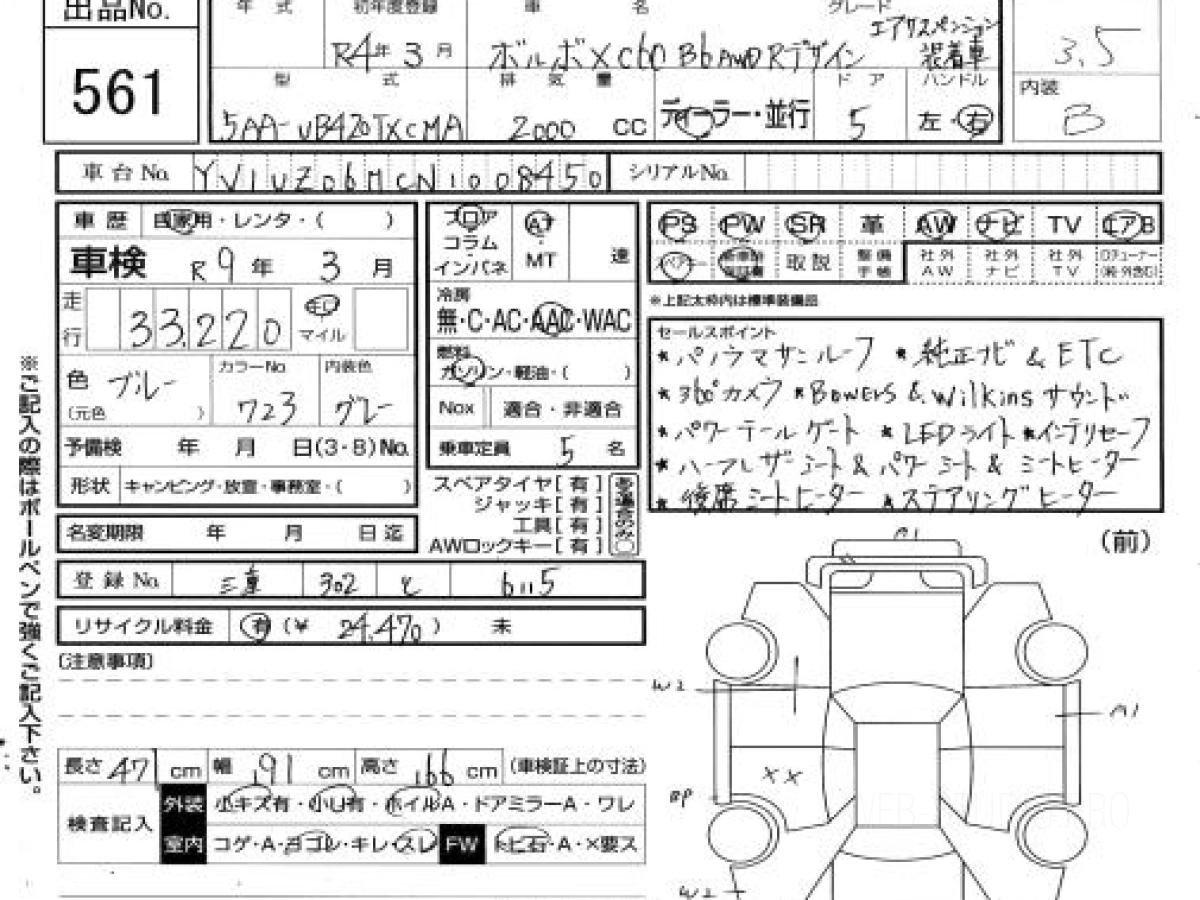 出品No.
561
年 式
初年度登録
R4年 3月
車 名
ボルボ XC60 B6 AWD Rデザイン
グレード
エアサスペンション
装着車
3.5
内装
B
型 式
5AA-UB420TXCMA
排 気 量
2000 CC
ディーラー・並行
ド ア
5
ハンドル
左・右
車台No. YV1UZ06MCN1008450
シリアルNo.
車歴 自家用・レンタ・( )
車検 R9年 3月
走行 33,220 キロ マイル
色 ブルー
(元色 )
カラーNo. 723
内装色 グレー
予備検 年 月 日(3・8)No.
形状 キャンピング・放宣・事務室・( )
名変期限 年 月 日迄
フロア
コラム
インパネ
AT
・
MT
速
冷房
無・C・AC・AAC・WAC
燃料
ガソリン・軽油・( )
Nox 適合・非適合
乗車定員 5 名
スペアタイヤ[有]
ジャッキ[有]
工具[有]
AWロックキー[有]
PS PW SR 革 AW ナビ TV エアB
スペアキー 取説 整備手帳 社外AW 社外ナビ 社外TV
※上記太枠内は標準装備品
セールスポイント
*パノラマサンルーフ *純正ナビ & ETC
*360°カメラ *Bowers & Wilkins サウンド
*パワーテールゲート *LEDライト *インテリセーフ
*ハーフレザーシート & パワーシート & シートヒーター
*後席シートヒーター *ステアリングヒーター
登録No. 三重 302 6115
リサイクル料金 有(¥ 24,470) 未
(注意事項)
長さ 471 cm 幅 191 cm 高さ 166 cm (車検証上の寸法)
検査記入
外装 小キズ有・小U有・ホイルA・ドアミラーA・ワレ
室内 コゲ・A・ヨゴレ・キレ・スレ FW トビ石・A・×要ス
※ご記入の際はボールペンで強くご記入下さい。
(前)
A1
W2
A1
××
BP
W2